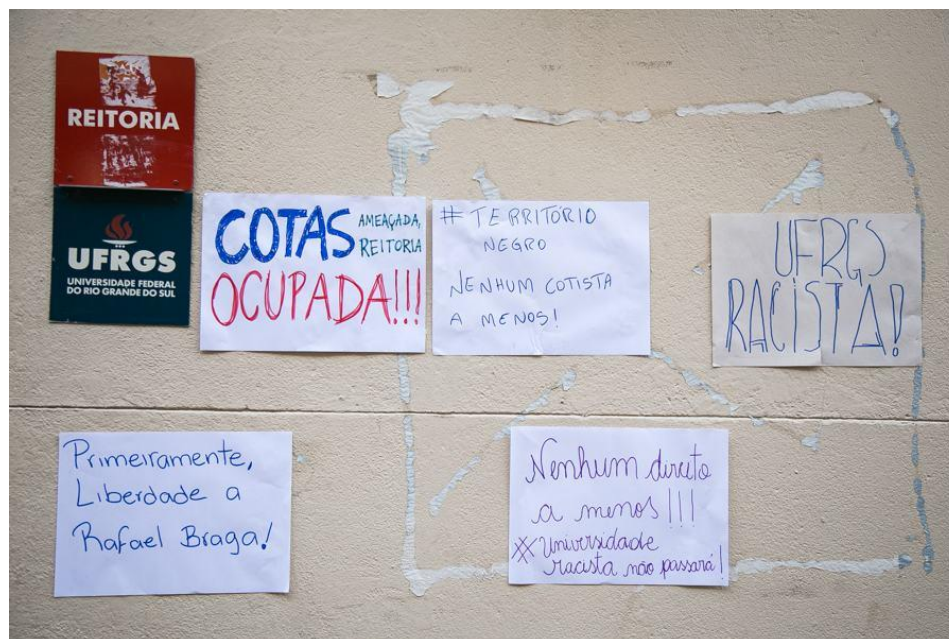 REITORIA
UFRGS
UNIVERSIDADE FEDERAL
DO RIO GRANDE DO SUL
COTAS AMEAÇADA,
REITORIA
OCUPADA!!!
# TERRITÓRIO
NEGRO
NENHUM COTISTA
A MENOS!
UFRGS
RACISTA!
Primeiramente,
Liberdade a
Rafael Braga!
Nenhum direito
a menos!!!
#Universidade
racista não passará!